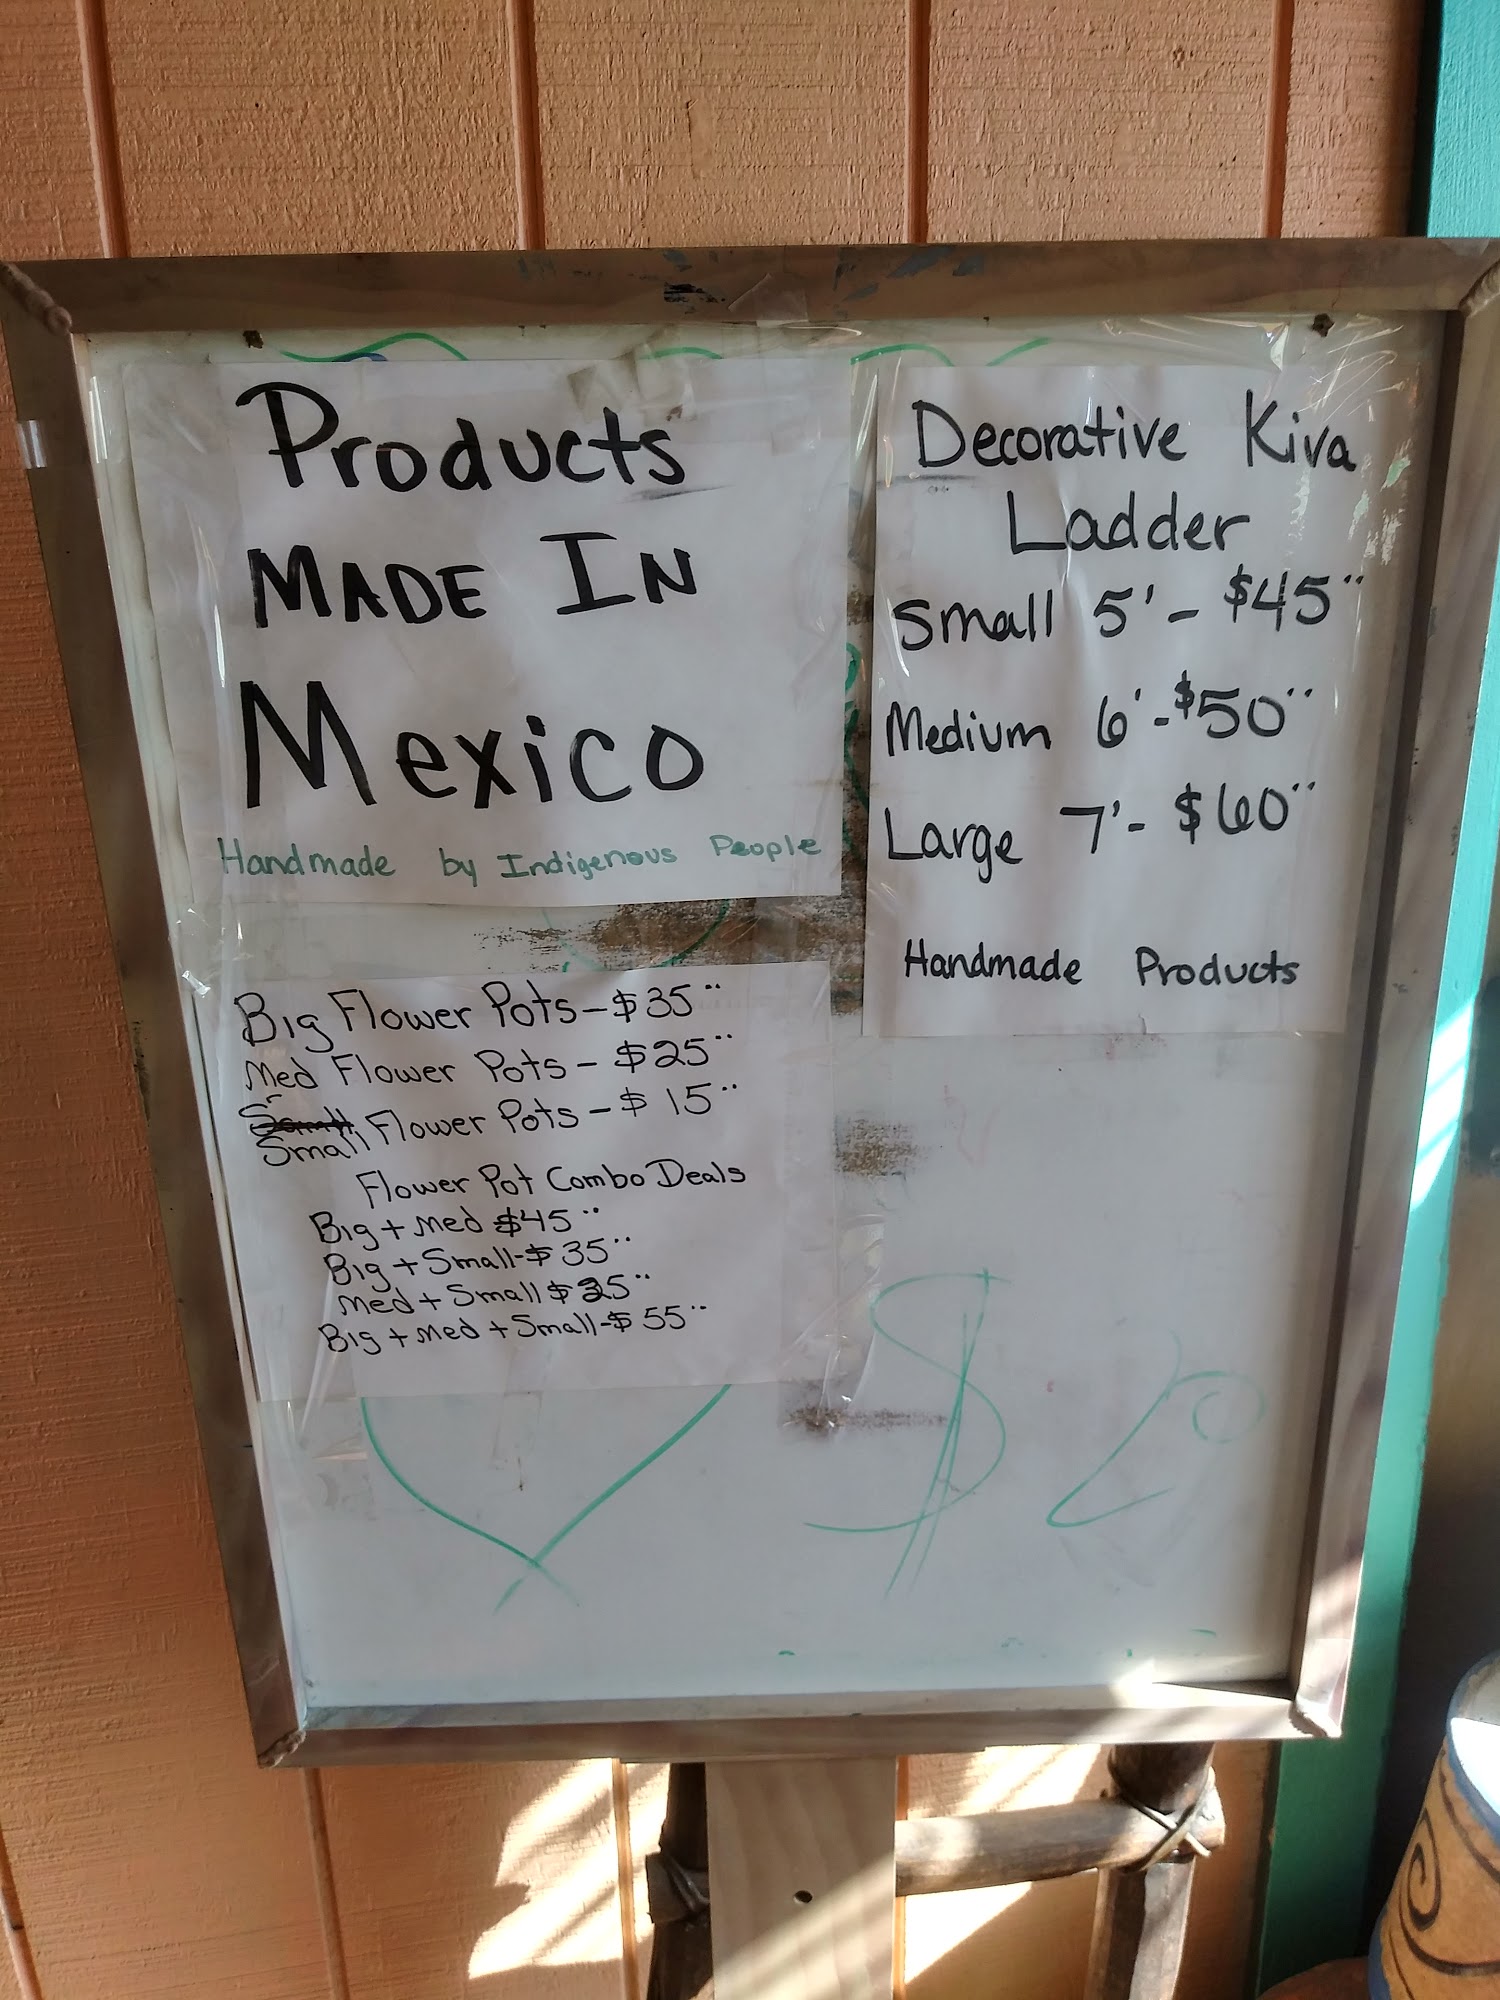 Products
MADE IN
Mexico
Handmade by Indigenous People
Decorative Kiva
Ladder
Small 5' - $45¨
Medium 6' - $50¨
Large 7' - $60¨
Handmade Products
Big Flower Pots - $35¨
Med Flower Pots - $25¨
Small Flower Pots - $15¨
Flower Pot Combo Deals
Big + Med $45¨
Big + Small - $35¨
Med + Small $25¨
Big + Med + Small - $55¨